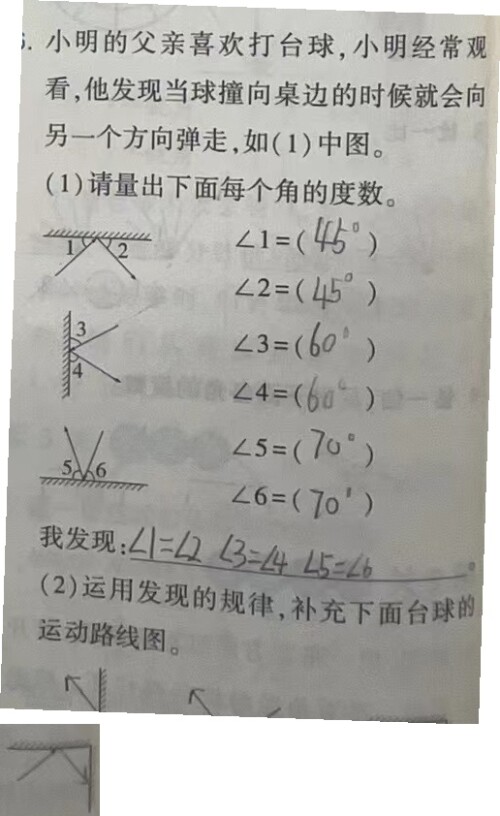 6. 小明的父亲喜欢打台球,小明经常观
看,他发现当球撞向桌边的时候就会向
另一个方向弹走,如(1)中图。
(1)请量出下面每个角的度数。
1 2 ∠1=(45°)
∠2=(45°)
3 ∠3=(60°)
4 ∠4=(60°)
∠5=(70°)
5 6 ∠6=(70°)
我发现:∠1=∠2 ∠3=∠4 ∠5=∠6。
(2)运用发现的规律,补充下面台球的
运动路线图。